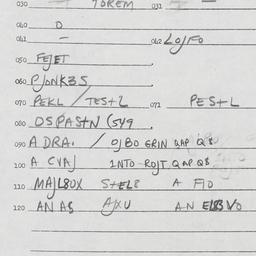 030 TOREM 031 —
040 D
041 — 042 LOJFO
050 FEJET
060 PJONK3S
070 PEKL / TESTL 071 PESTL
080 DSPASTN (S49
090 A DRA. / OJBO ERIN QAP Q8
100 A CVAJ INTO ROJT QAP Q8
110 MAJL80X STEL8 A FIO
120 AN AS AJXU AN